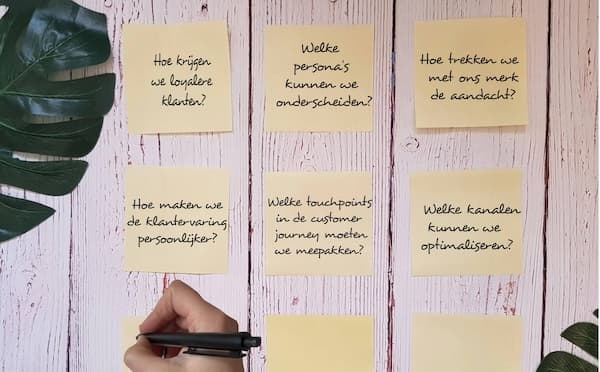 Hoe krijgen
we loyalere
klanten?
Welke
persona's
kunnen we
onderscheiden?
Hoe trekken we
met ons merk
de aandacht?
Hoe maken we
de klantervaring
persoonlijker?
Welke touchpoints
in de customer
journey moeten
we meepakken?
Welke kanalen
kunnen we
optimaliseren?